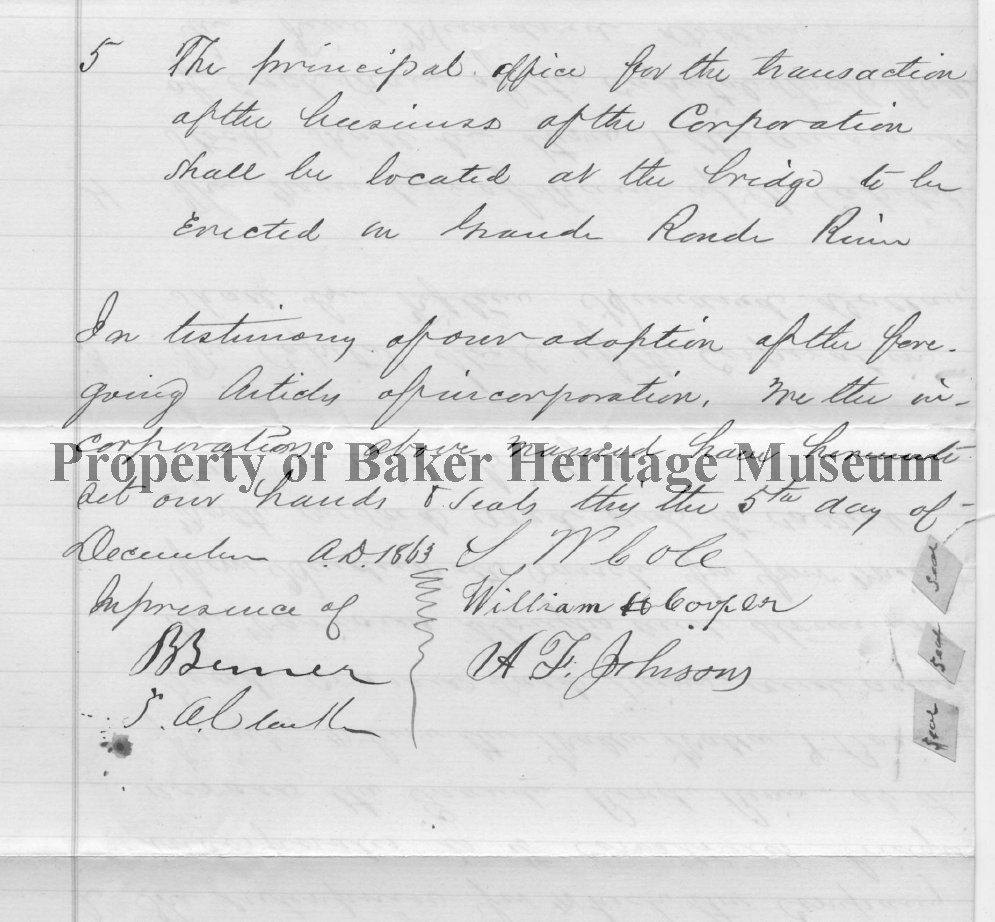 5 The principal office for the transaction
of the business of the Corporation
shall be located at the bridge to be
Erected on Grande Ronde River
In testimony of our adoption of the fore-
going Articles of incorporation, We the in-
corporators above named have hereunto
Property of Baker Heritage Museum
set our hands & seals this the 5th day of
December A.D. 1863 S W Cole
In presence of William H Cooper
A F. Johnson
Seal
Seal
Seal